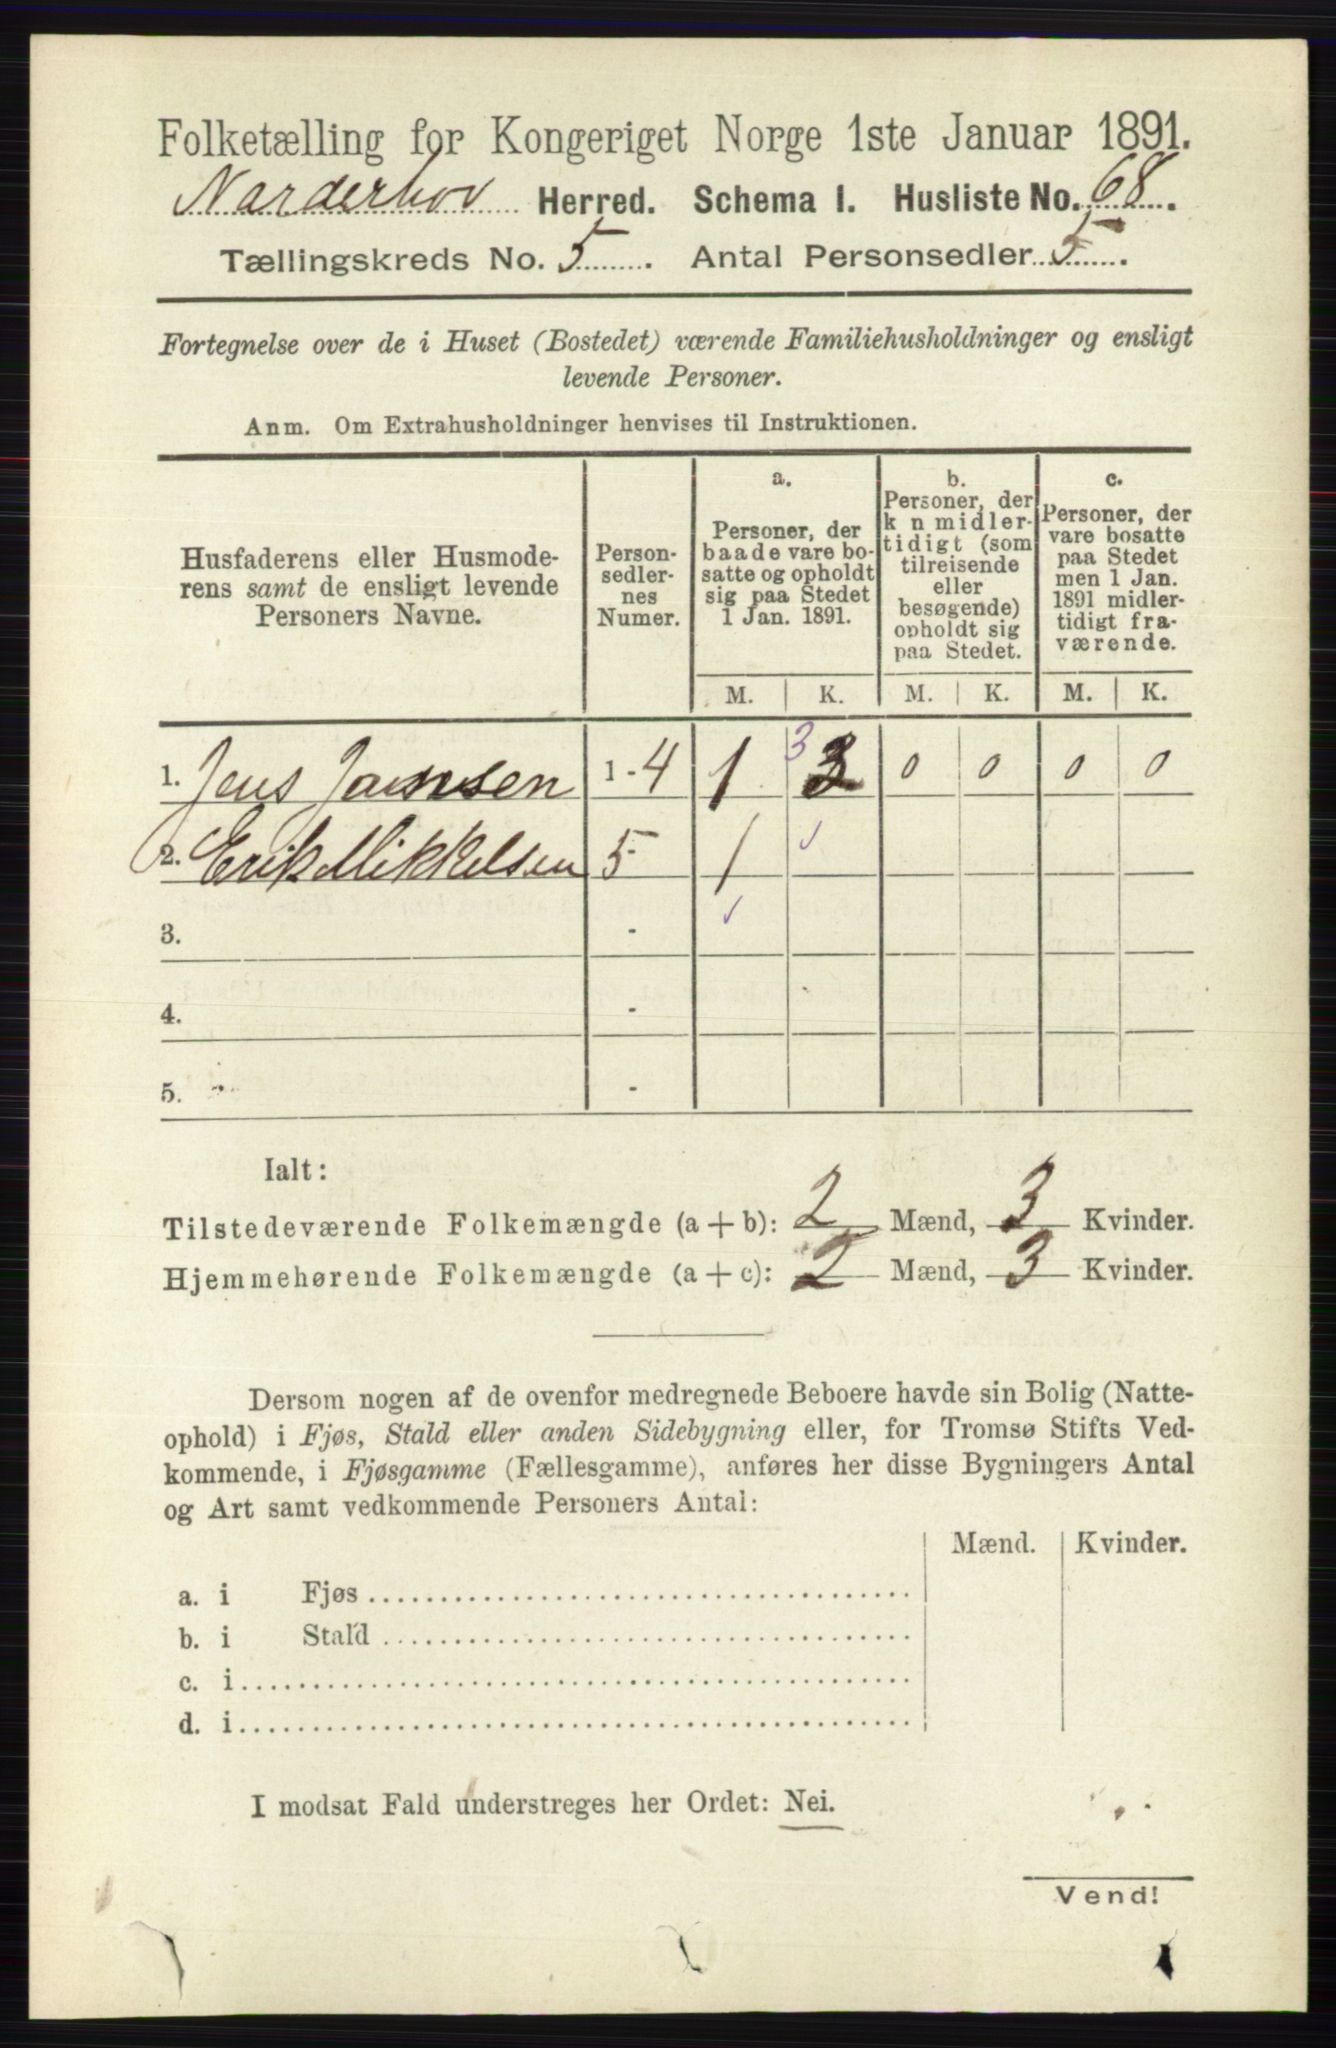 Folketælling for Kongeriget Norge 1ste Januar 1891.
Narderhov Herred. Schema I. Husliste No. 68.
Tællingskreds No. 5. Antal Personsedler 5.
Fortegnelse over de i Huset (Bostedet) værende Familiehusholdninger og ensligt
levende Personer.
Anm. Om Extrahusholdninger henvises til Instruktionen.
Husfaderens eller Husmode-
rens samt de ensligt levende
Personers Navne.
Person-
sedler-
nes
Numer.
a.
Personer, der
baade vare bo-
satte og opholdt
sig paa Stedet
1 Jan. 1891.
b.
Personer, der
k n midler-
tidigt (som
tilreisende
eller
besøgende)
opholdt sig
paa Stedet.
c.
Personer, der
vare bosatte
paa Stedet
men 1 Jan.
1891 midler-
tidigt fra-
værende.
M. K. M. K. M. K.
1. Jens Jansen 1-4 1 3 3 0 0 0 0
2. Erik Mikkelsen 5 1 ✓
3. - ✓
4. -
5. -
Ialt:
Tilstedeværende Folkemængde (a + b): 2 Mænd, 3 Kvinder.
Hjemmehørende Folkemængde (a + c): 2 Mænd, 3 Kvinder.
Dersom nogen af de ovenfor medregnede Beboere havde sin Bolig (Natte-
ophold) i Fjøs, Stald eller anden Sidebygning eller, for Tromsø Stifts Ved-
kommende, i Fjøsgamme (Fællesgamme), anføres her disse Bygningers Antal
og Art samt vedkommende Personers Antal:
Mænd. Kvinder.
a. i Fjøs
b. i Stald
c. i
d. i
I modsat Fald understreges her Ordet: Nei.
Vend!